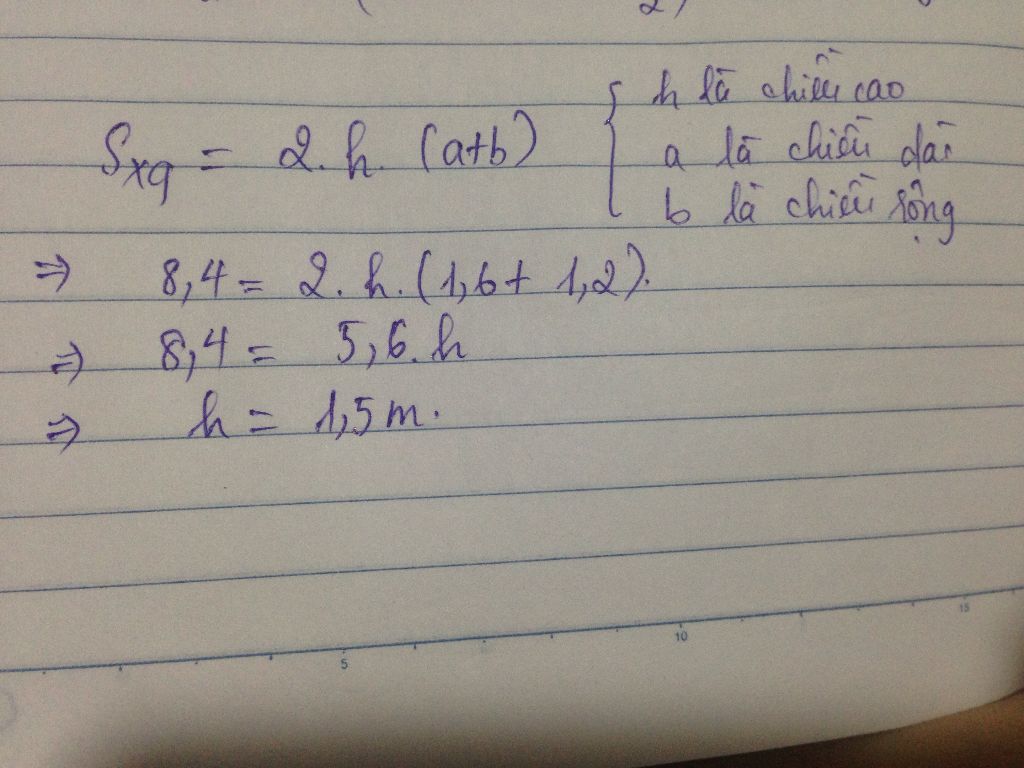 2)
Sxq = 2. h. (a+b) { h là chiều cao
a là chiều dài
b là chiều rộng
⇒ 8,4 = 2. h. (1,6 + 1,2).
⇒ 8,4 = 5,6. h
⇒ h = 1,5 m.
5 10 15